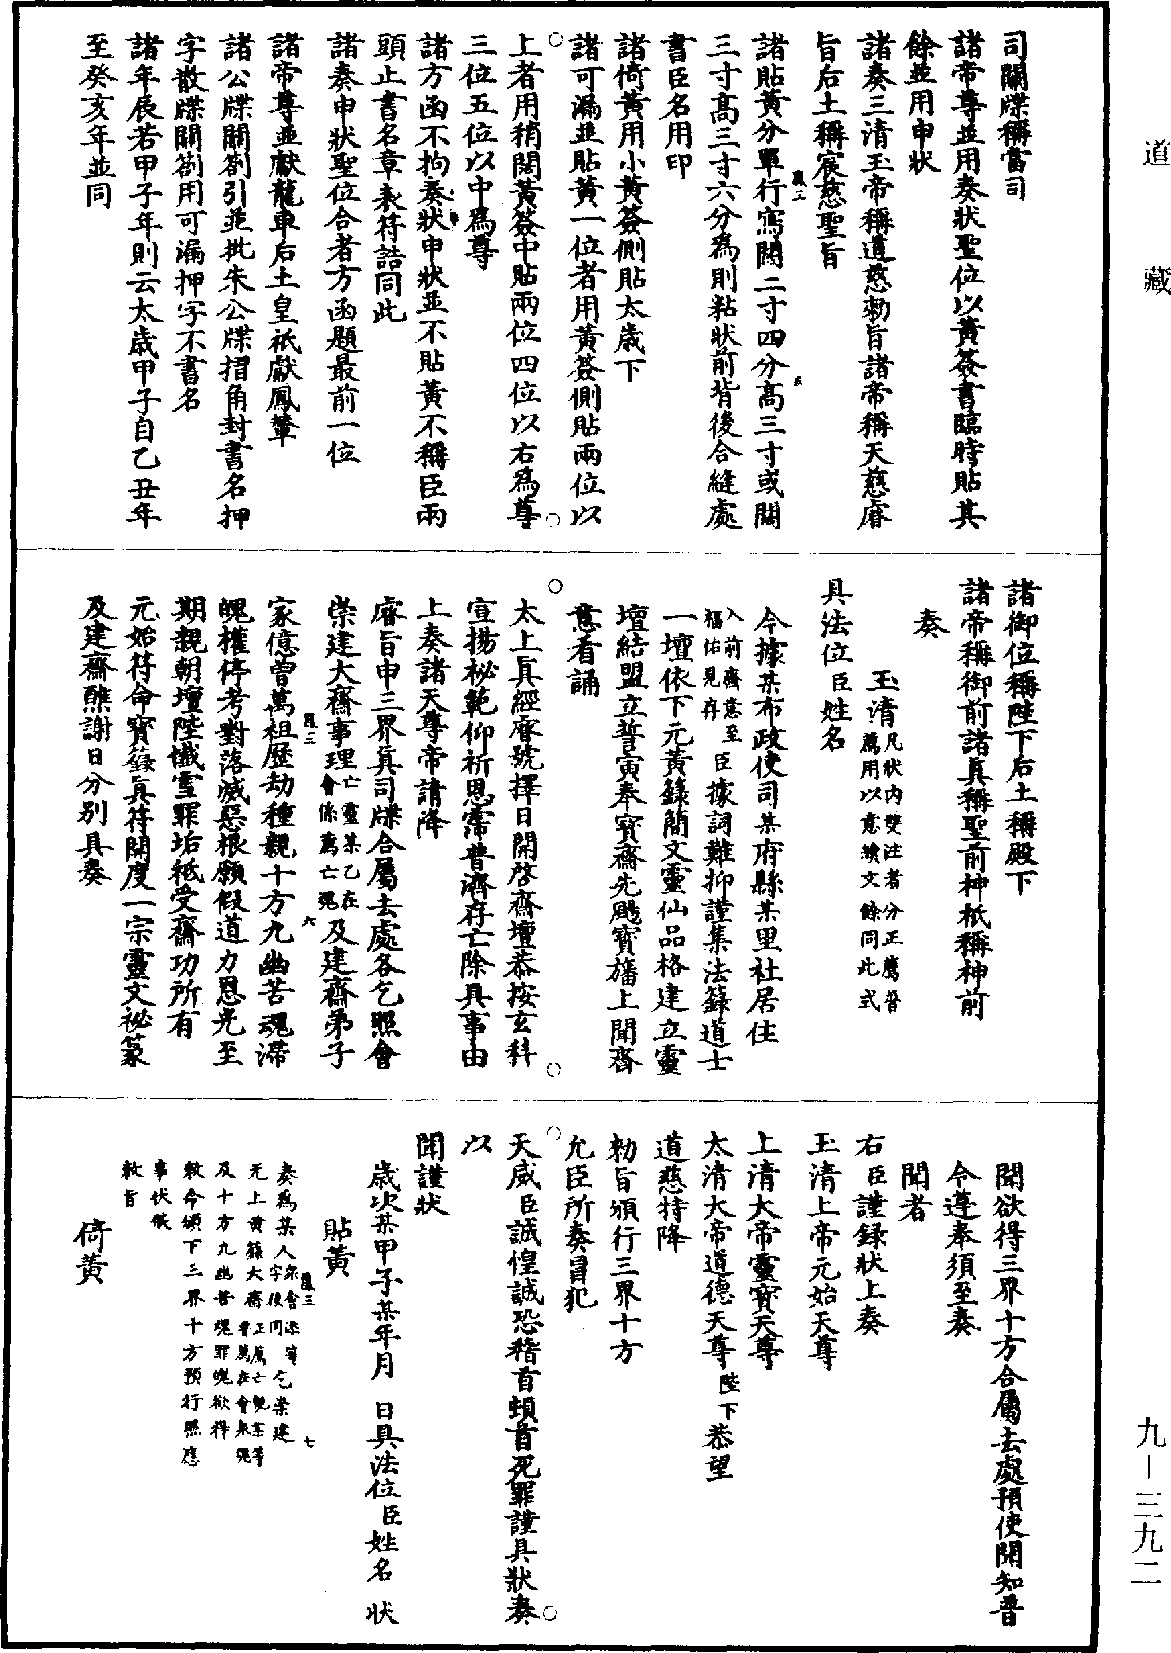 道藏
九—三九二
司關牒稱當司
諸帝尊並用奏狀聖位以黃簽書臨時貼其
餘並用申狀
諸奏三清玉帝稱道慈勑旨諸帝稱天慈睿
旨后土稱宸慈聖旨
諸貼黃分單行寫闊二寸四分高三寸或闊
三寸高三寸六分為則粘狀前背後合縫處
書臣名用印
諸倚黃用小黃簽側貼太歲下
諸可漏並貼黃一位者用黃簽側貼兩位以
上者用稍闊黃簽中貼兩位四位以右為尊
三位五位以中為尊
諸方函不拘奏狀申狀並不貼黃不稱臣兩
頭止書名章表符誥同此
諸奏申狀聖位合者方函題最前一位
諸帝尊並獻龍車后土皇祇獻鳳輦
諸公牒關劄引並批朱公牒摺角封書名押
字散牒關劄用可漏押字不書名
諸年辰若甲子年則云太歲甲子自乙丑年
至癸亥年並同
諸御位稱陛下后土稱殿下
諸帝稱御前諸真稱聖前神祇稱神前
奏
玉清凡狀內雙注者分正薦普薦用以意續文餘同此式
具法位臣姓名
今據某布政使司某府縣某里社居住
入前齋意至福佑見存臣據詞難抑謹集法籙道士
一壇依下元黃籙簡文靈仙品格建立靈
壇結盟立誓寅奉寶齋先颺寶旛上聞齋
意看誦
太上真經睿號擇日開啓齋壇恭按玄科
宣揚祕範仰祈恩霈普濟存亡除具事由
上奏諸天尊帝請降
睿旨申三界真司牒合屬去處各乞照會
崇建大齋事理亡靈某乙在會係薦亡魂及建齋弟子
家億曾萬祖歷劫種親十方九幽苦魂滯
魄權停考對落滅惡根願假道力恩光至
期親朝壇陛懺雪罪垢祗受齋功所有
元始符命寶籙真符開度一宗靈文祕篆
及建齋醮謝日分別具奏
聞欲得三界十方合屬去處預使聞知普
令遵奉須至奏
聞者
右臣謹錄狀上奏
玉清上帝元始天尊
上清大帝靈寶天尊
太清大帝道德天尊陛下恭望
道慈特降
勑旨頒行三界十方
允臣所奏冒犯
天威臣誠惶誠恐稽首頓首死罪謹具狀奏
以
聞謹狀
歲次某甲子某年月　日具法位臣姓名　狀
貼黃
奏為某人乞崇建
无上黃籙大齋
及十方九幽苦魂罪魄欲得
敕命頒下三界十方預行照應
事伏候
敕旨
倚黃